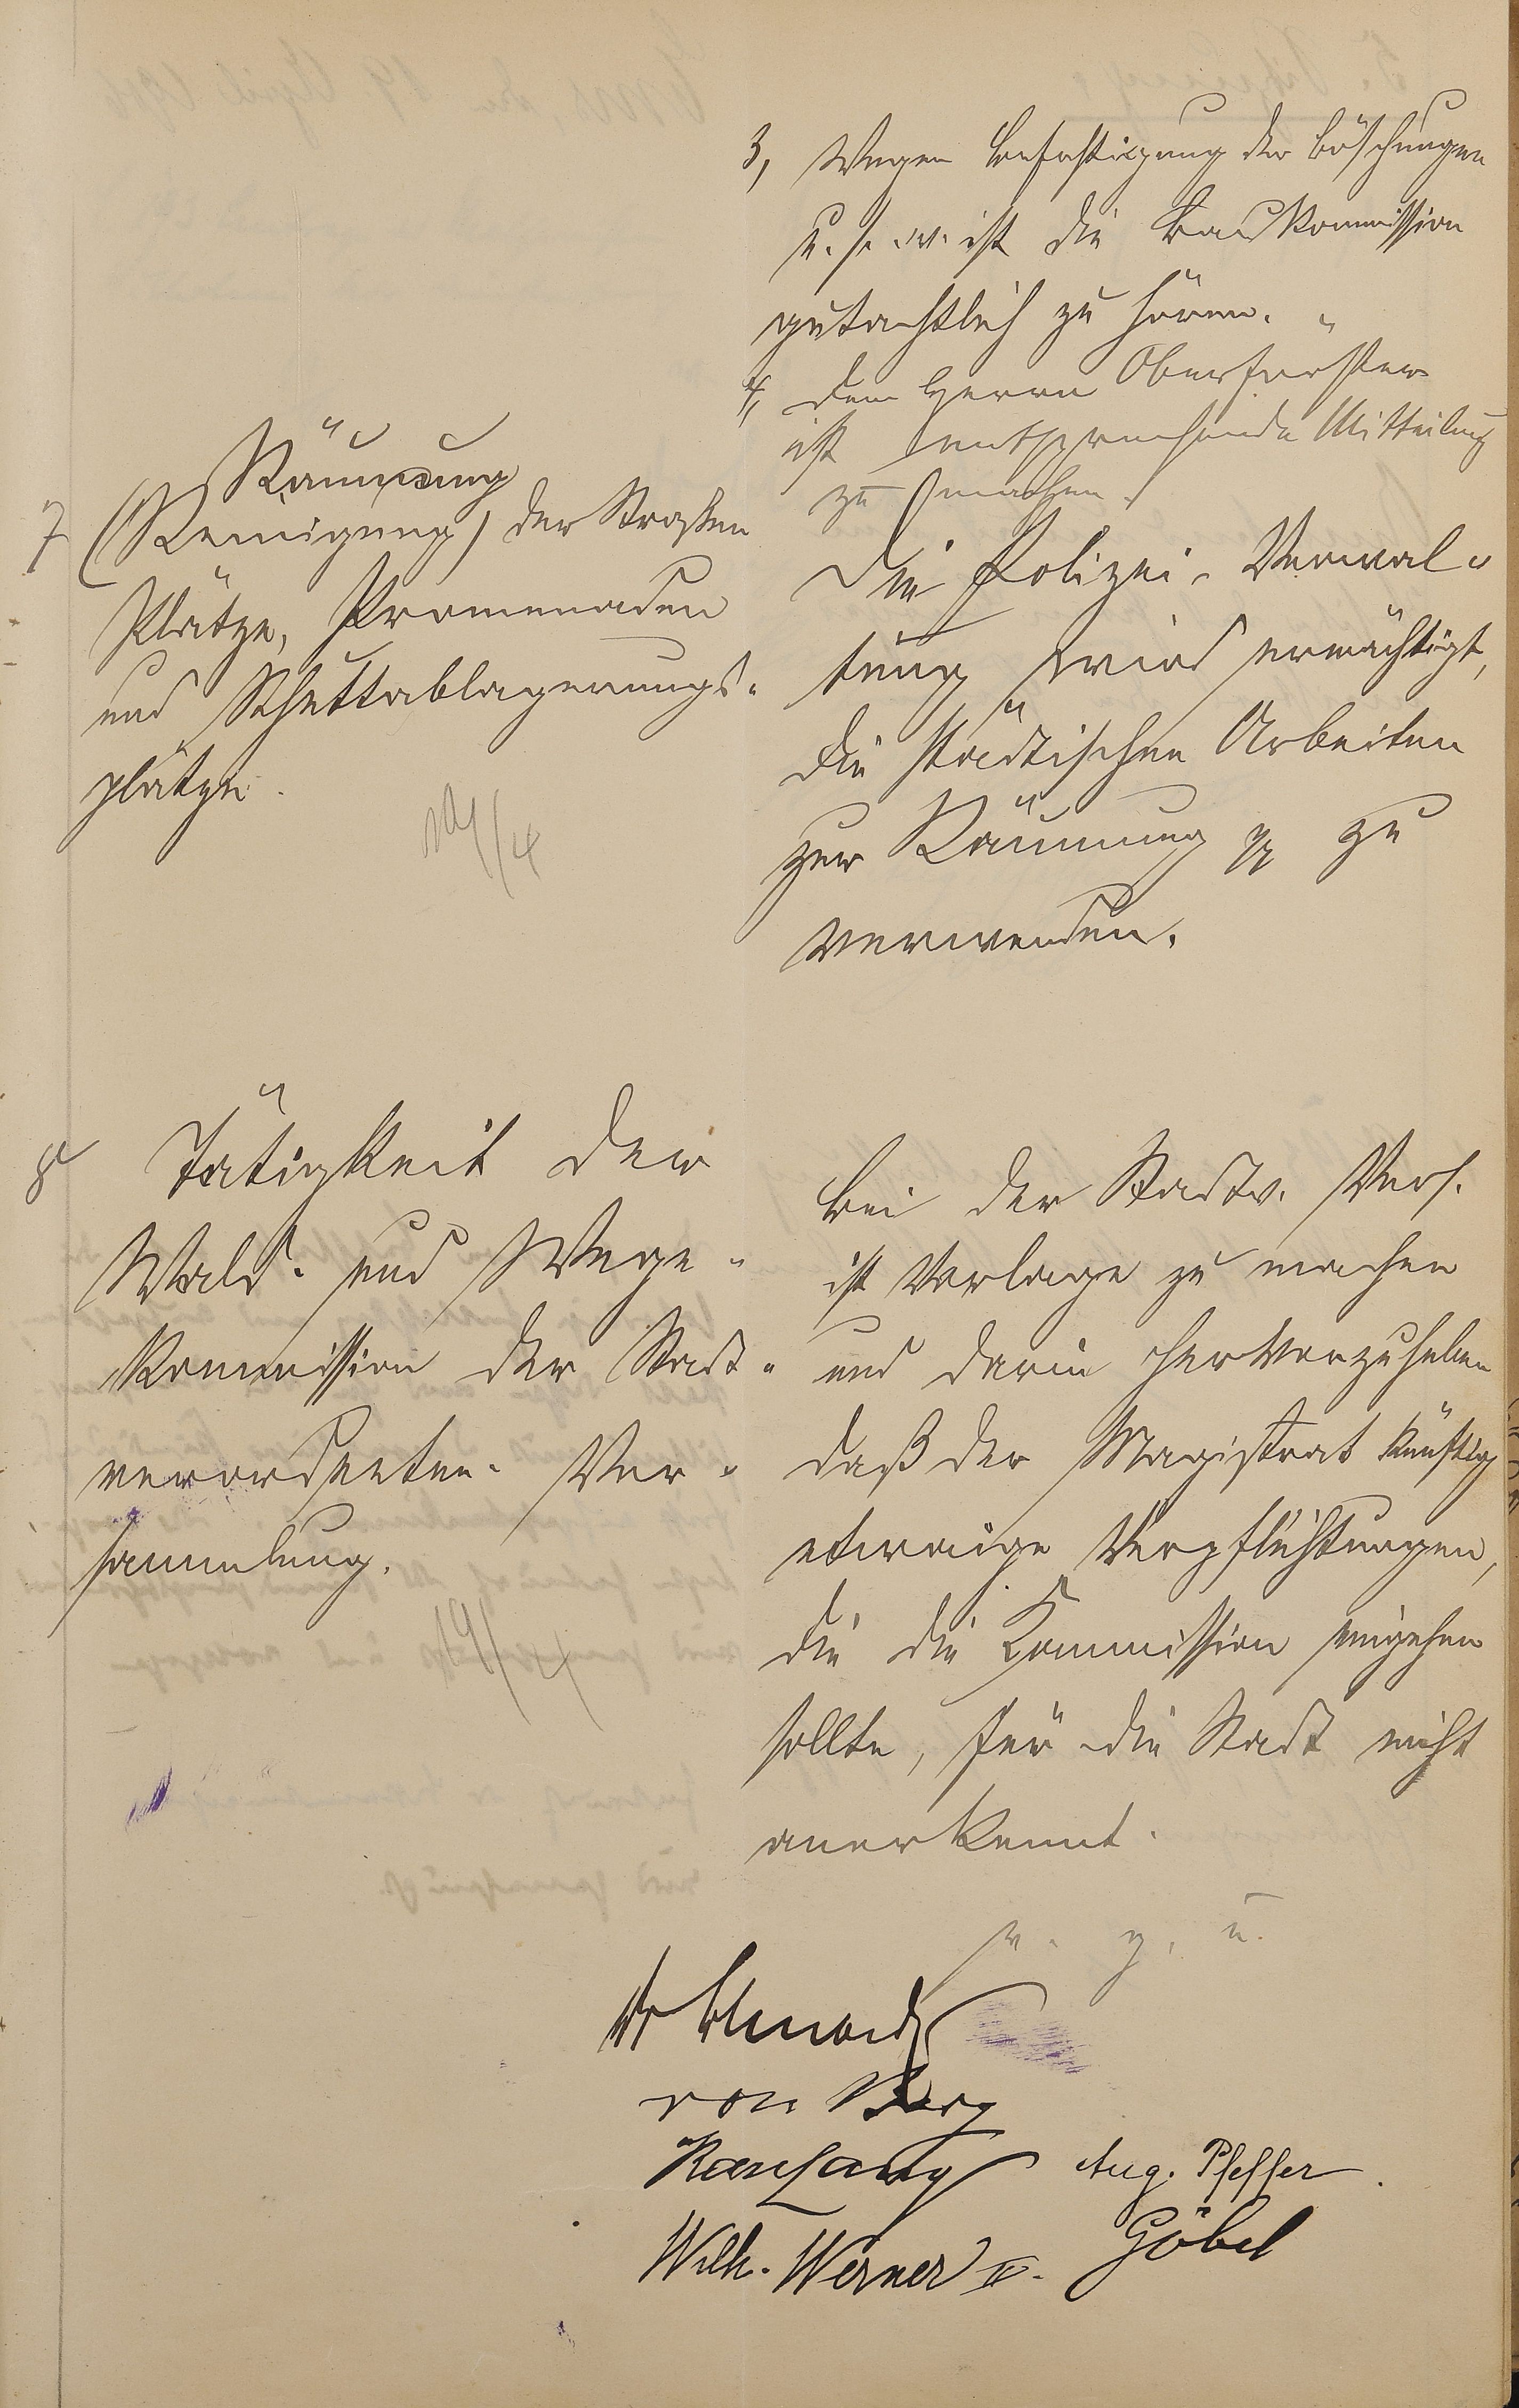 3, Wegen Befestigung der Böschungen
u. s. w. ist die Baukommission
gutachtlich zu hören.
4, Dem Herrn Oberförster
ist entsprechende Mitteilung
zu machen.
Räumung
7 (Reinigung) der Straßen
Plätze, Promenaden
und Schuttablagerungs-
plätze.
19/4
Die Polizei-Verwal-
tung wird ermächtigt,
die städtischen Arbeiten
zur Räumung pp zu
verwenden.
8 Tätigkeit der
Wald- und Wege-
kommission der Stadt-
verordneten-Ver-
sammlung.
19/4
Bei der Stadtv. Vers.
ist Vorlage zu machen
und darin hervorzuheben
daß der Magistrat künftig
etwaige Verpflichtungen,
die die Kommission eingehen
sollte, für die Stadt nicht
anerkennt.
v. g. u.
von Berg
Aug. Pfeffer.
Wilh. Werner II. Göbel